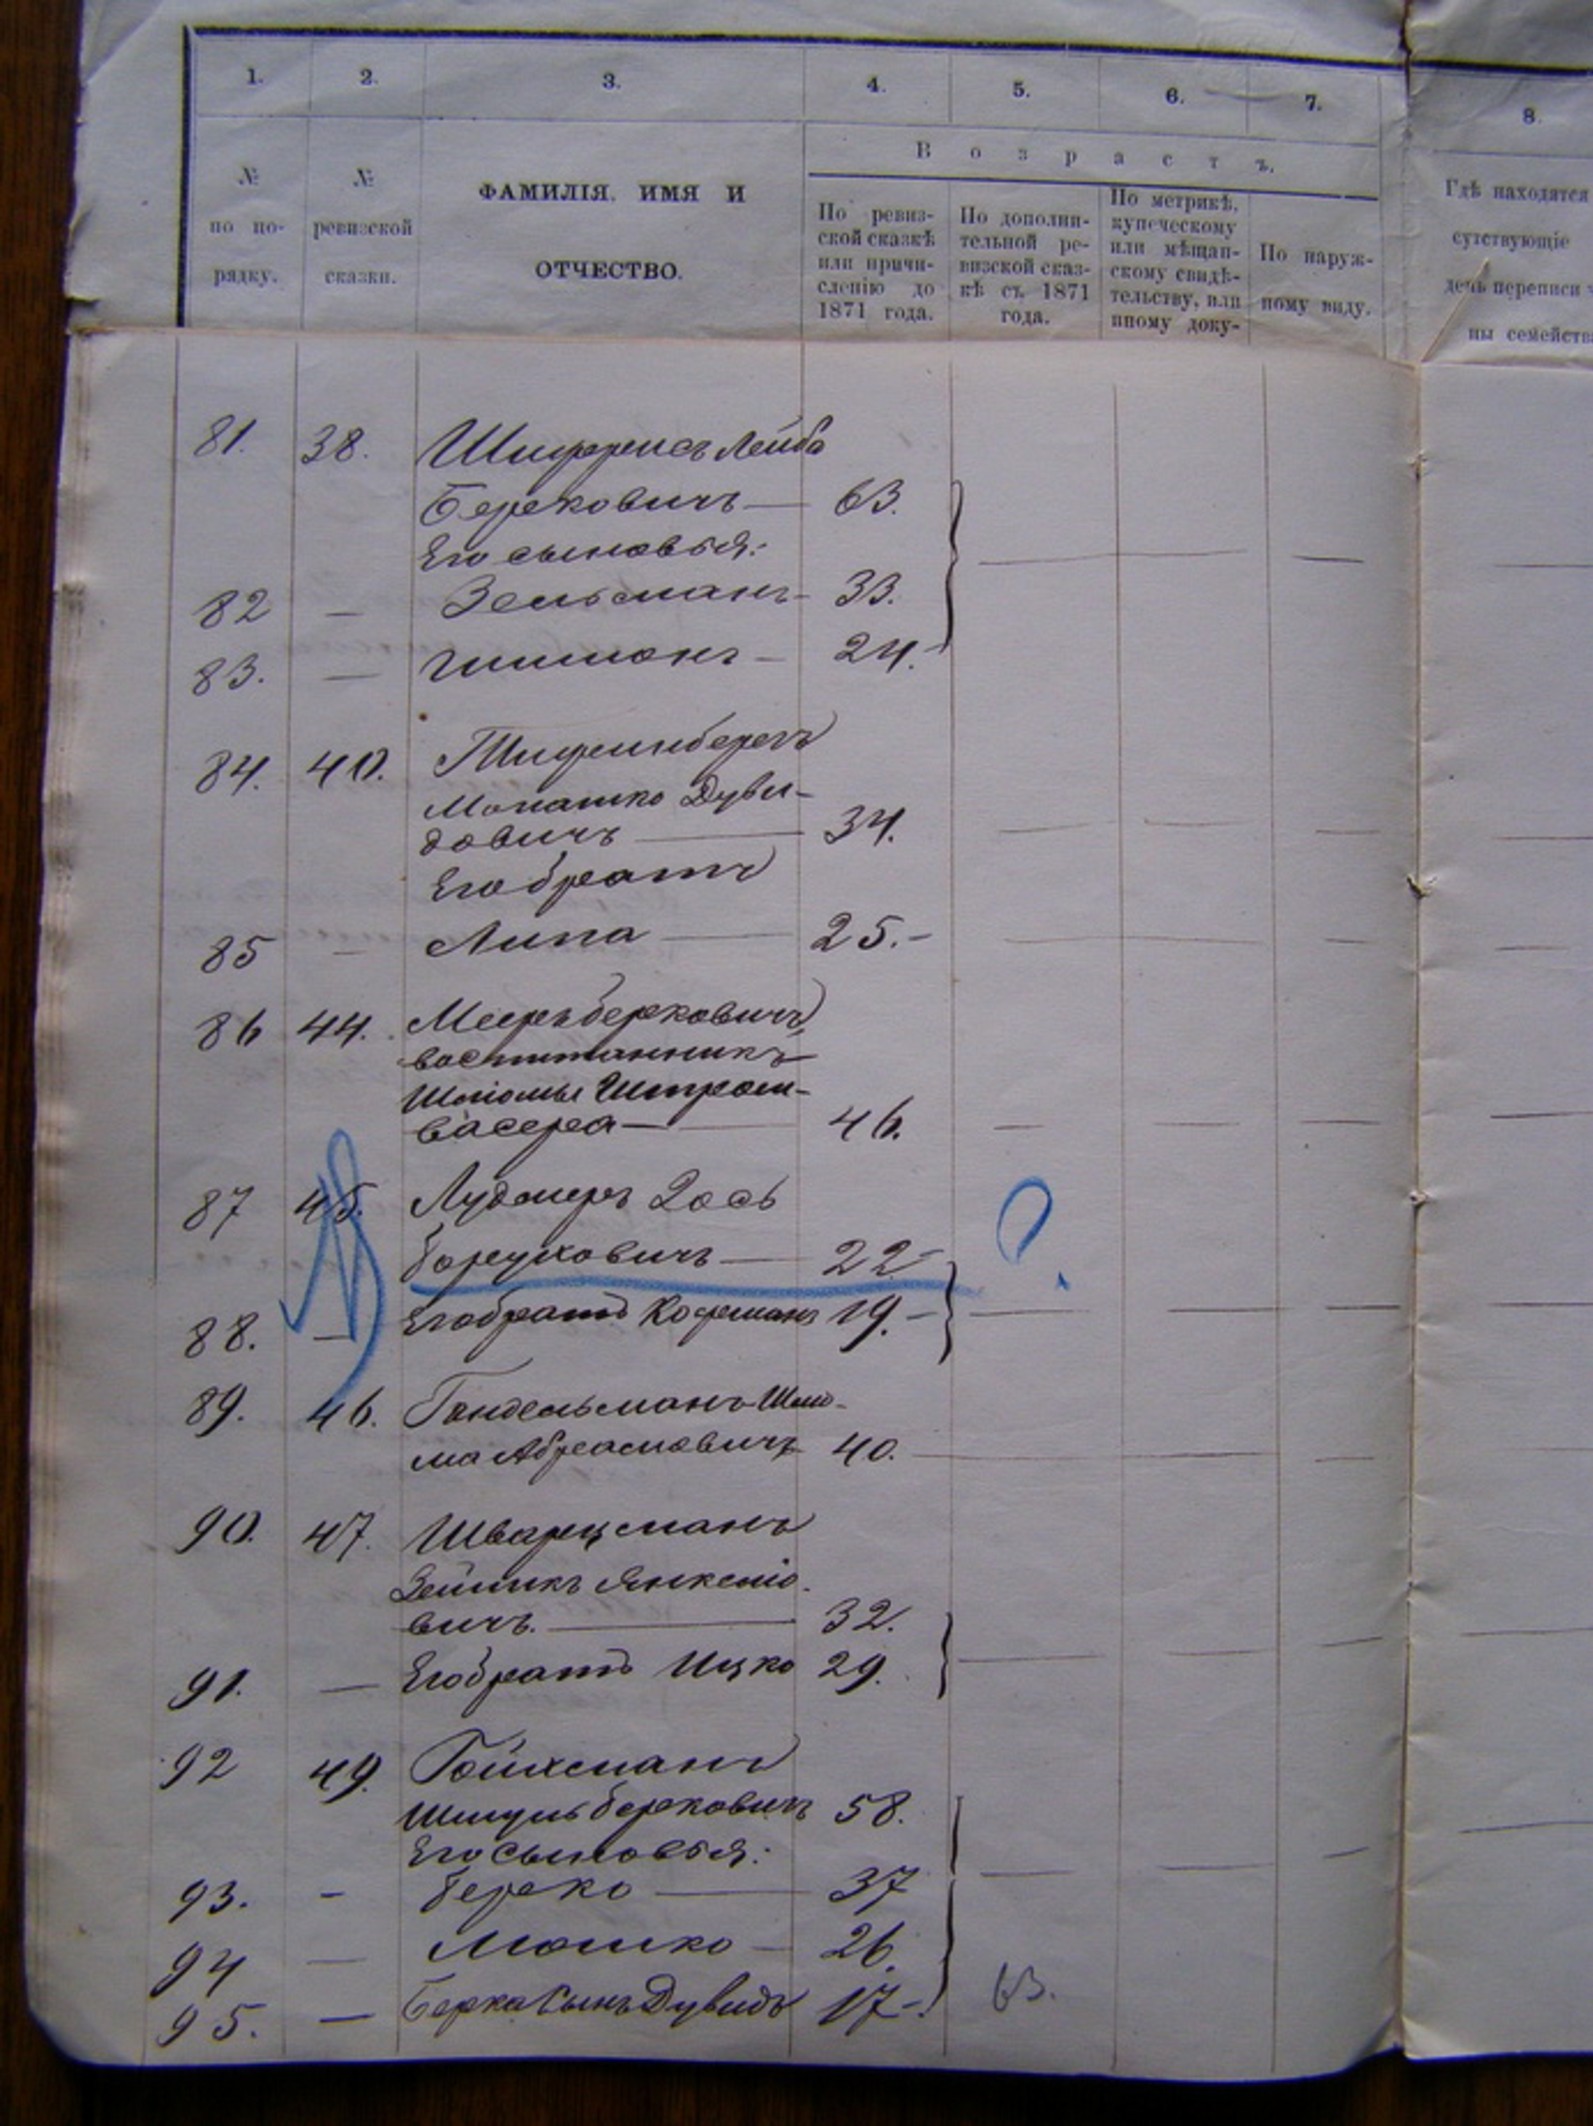 1. 2. 3. 4. 5. 6. 7. 8.
В о з р а с т ъ.
№ по по-рядку.
№ ревизской сказки.
ФАМИЛІЯ, ИМЯ И
ОТЧЕСТВО.
По ревиз-
ской сказкѣ
или причи-
сленію до
1871 года.
По дополни-
тельной ре-
визской сказ-
кѣ съ 1871
года.
По метрикѣ,
купеческому
или мѣщан-
скому свидѣ-
тельству, или
иному доку-
По наруж-
ному виду.
Гдѣ находятся
сутствующіе
день переписи ч
ны семейства
81. 38. Шифрисъ Лейба
Берековичъ — 63.
Его сыновья:
82 — Зельманъ — 33.
83. — Шимонъ — 24.
84. 40.
Монашко Дуви-
довичъ — 34.
Его братъ
85 — Липа — 25.
86 44. Мееръ Берковичъ,
воспитанникъ
Шлiомы Штром-
васера — 46.
87 45. Лудмеръ Іось
Боруховичъ — 22 ?
88. — Его братъ Кофманъ 19.
89. 46. Гандельманъ Шлио-
ма Абрамовичъ 40.
90. 47. Шварцманъ
Зейликъ Янкеліо-
вичъ. — 32.
91. — Его братъ Ицко 29.
92 49. Гойхманъ
Шмуль Берковичъ 58.
Его сыновья:
93. - Берко — 37
94 — Мошко — 26.
95. — Берка сынъ Дувидъ 17. 63.